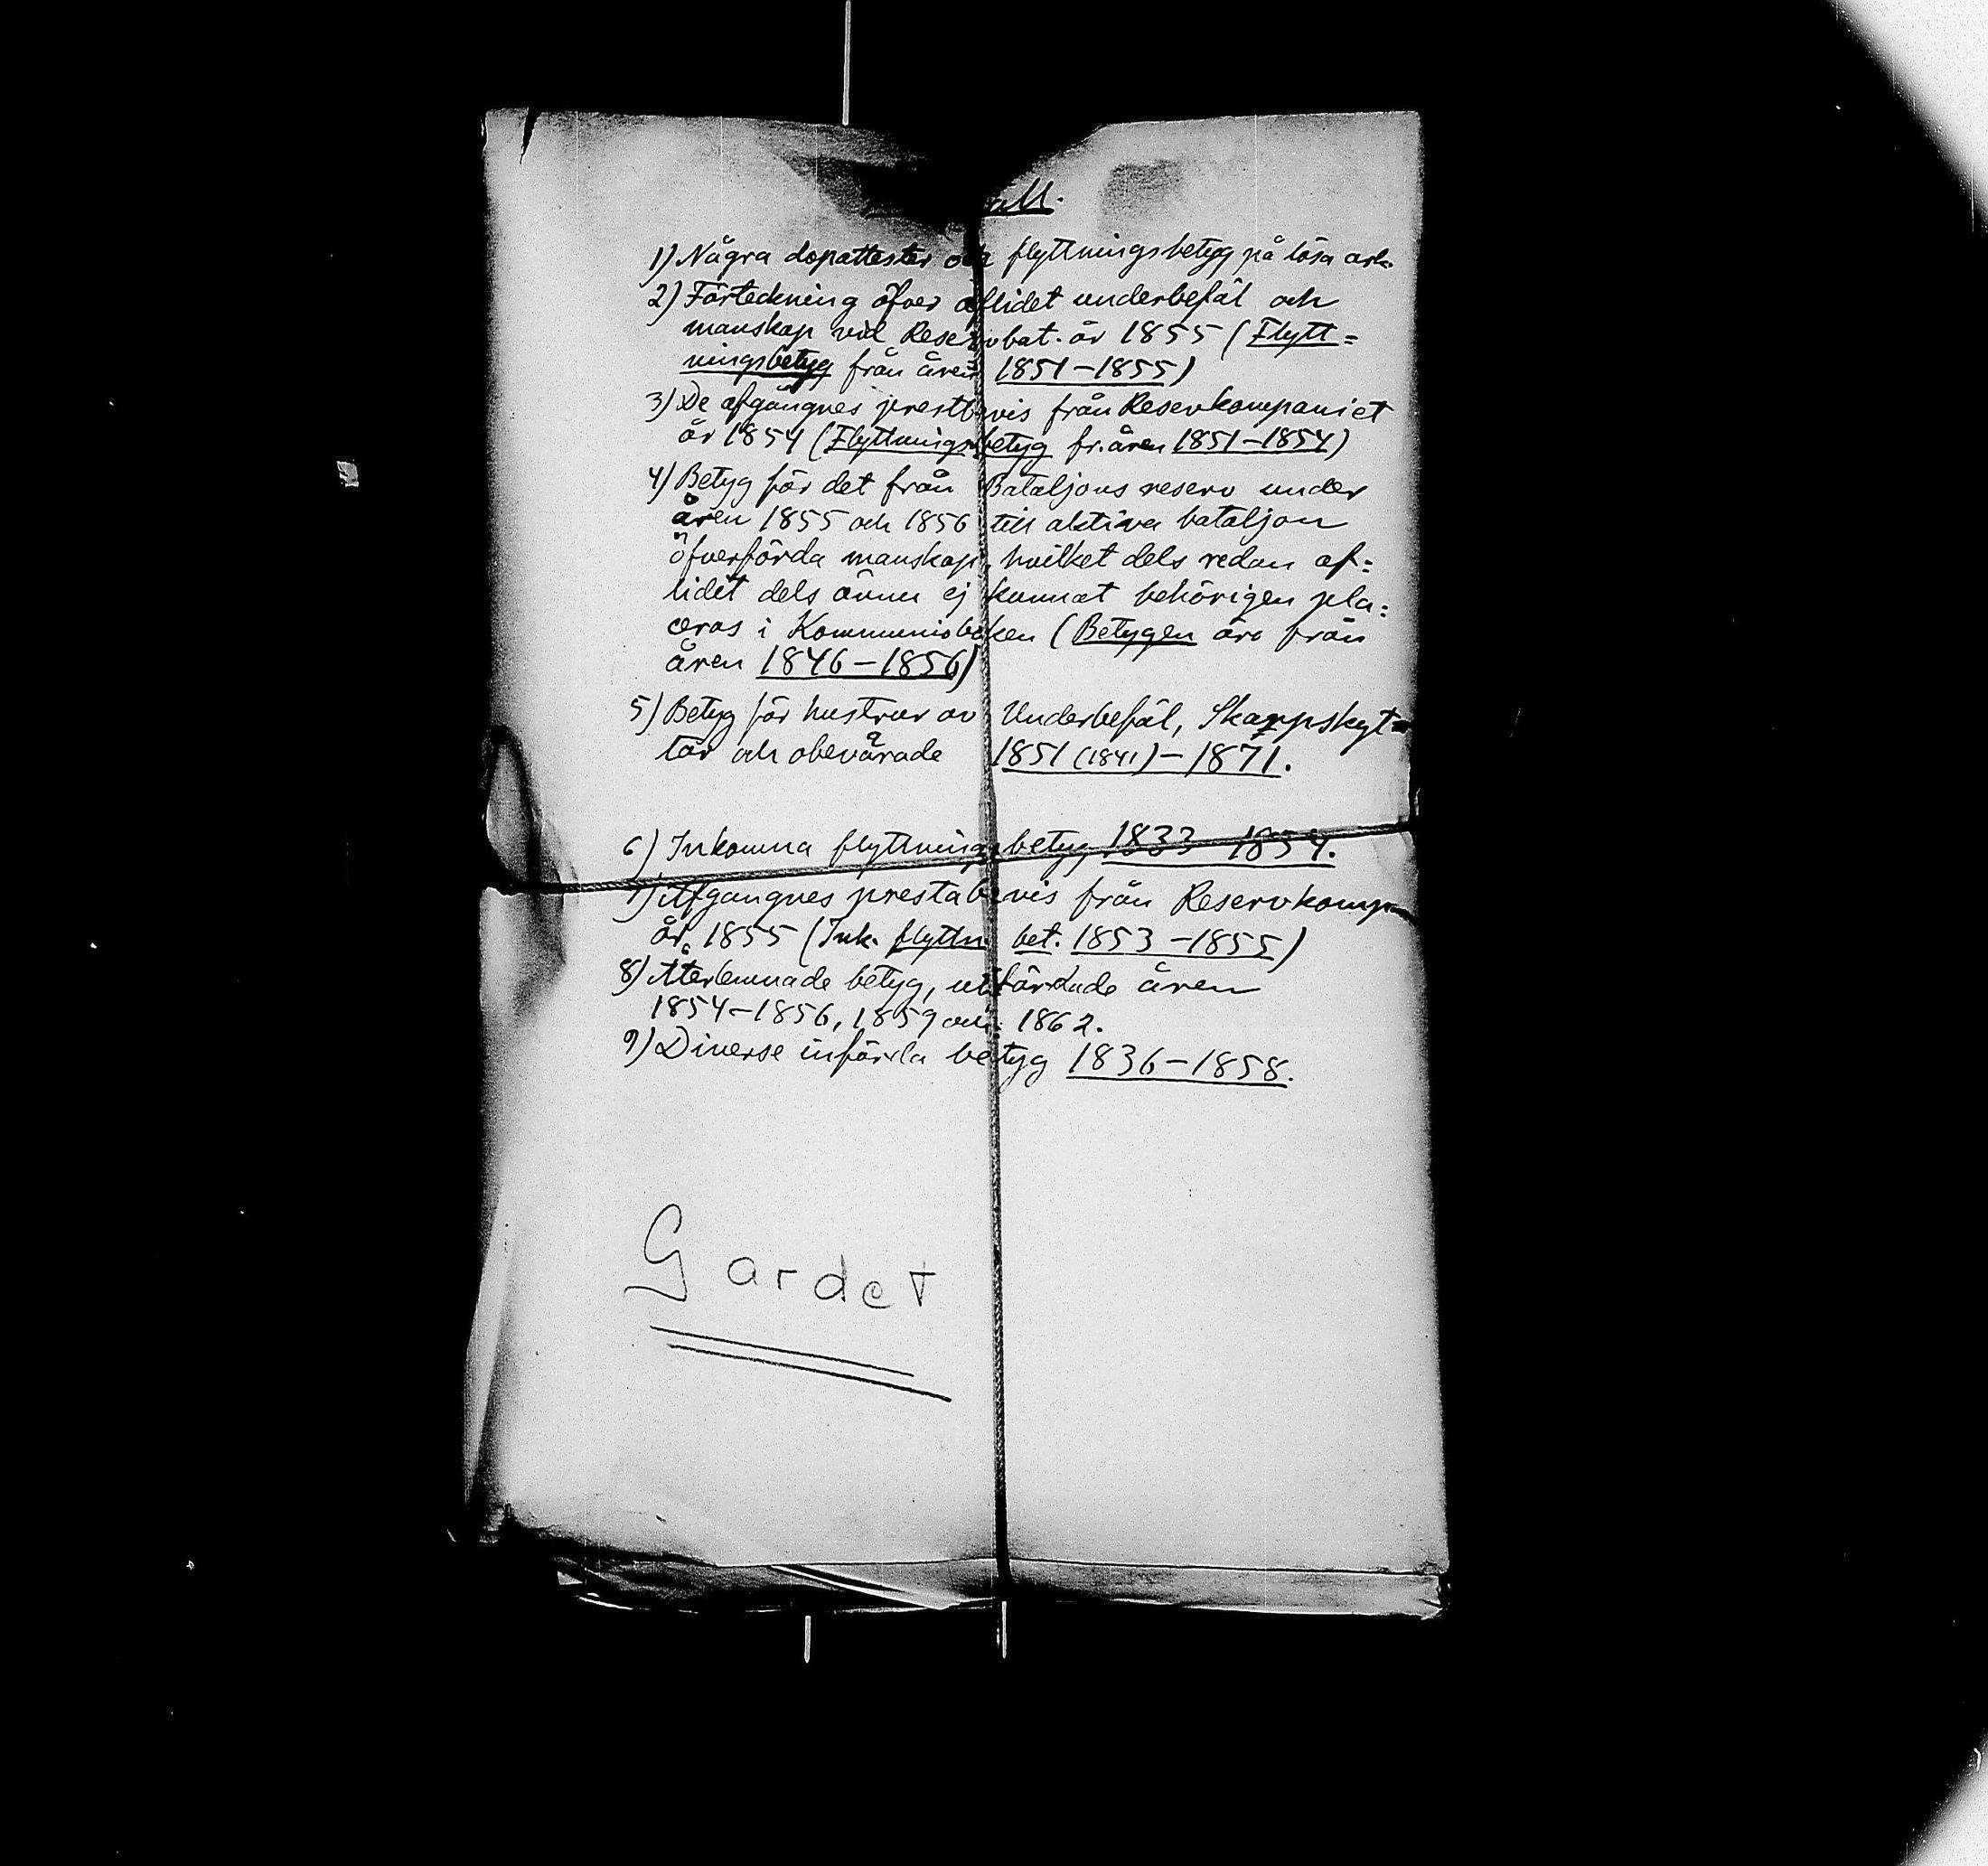 1) Några dopattester och flyttningsbetyg på lösa ark.
2) Förteckning öfver aflidet underbefäl och
manskap vid Reservbat. år 1855 (Flytt=
ningsbetyg från åren 1851–1855)
3) De afgångnes prestbevis från Reservkompaniet
år 1854 (Flyttningsbetyg fr. åren 1851–1854)
4) Betyg för det från Bataljons reserv under
åren 1855 och 1856 till aktiva bataljon
öfverförda manskap, hvilket dels redan af=
lidit dels ännu ej kunnat behörigen pla=
ceras i Kommunioboken (Betygen äro från
åren 1846–1856)
5) Betyg för hustrur av Underbefäl, Skarpskyt=
tar och obevärade 1851 (1841) – 1871.
6) Inkomna flyttningsbetyg 1833–1854.
7) Afgångnes prestabevis från Reservkomp.
år 1855 (Ink. flyttn. bet. 1853–1855)
8) Återlemnade betyg, utfärdade åren
1854–1856, 1859 och 1862.
9) Diverse införda betyg 1836–1858.
Gardet